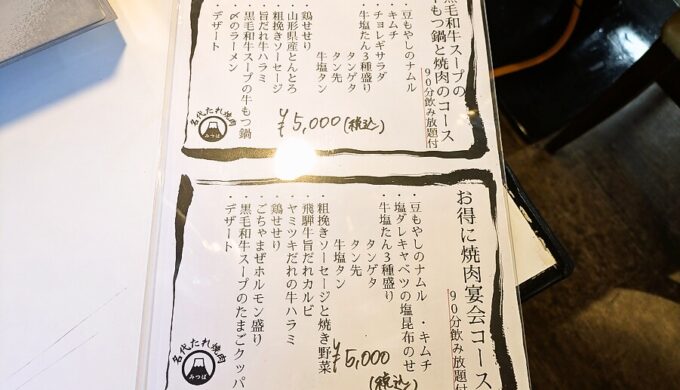 黒毛和牛スープの
牛もつ鍋と焼肉のコース
90分飲み放題付
・豆もやしのナムル
・キムチ
・チョレギサラダ
・牛塩たん3種盛り
タンゲタ
タン先
牛塩タン
・鶏せせり
・山形県産とんとろ
・粗挽きソーセージ
・旨だれ牛ハラミ
・黒毛和牛スープの牛もつ鍋
・〆のラーメン
・デザート
¥5,000(税込)
名代たれ焼肉
みつば
お得に焼肉宴会コース
90分飲み放題付
・豆もやしのナムル ・キムチ
・塩ダレキャベツの塩昆布のせ
・牛塩たん3種盛り
タンゲタ
タン先
牛塩タン
・粗挽きソーセージと焼き野菜
・飛騨牛旨だれカルビ
・ヤミツキだれの牛ハラミ
・鶏せせり
・ごちゃまぜホルモン盛り
・黒毛和牛スープのたまごクッパ
・デザート
¥5,000
(税込)
名代たれ焼肉
みつば